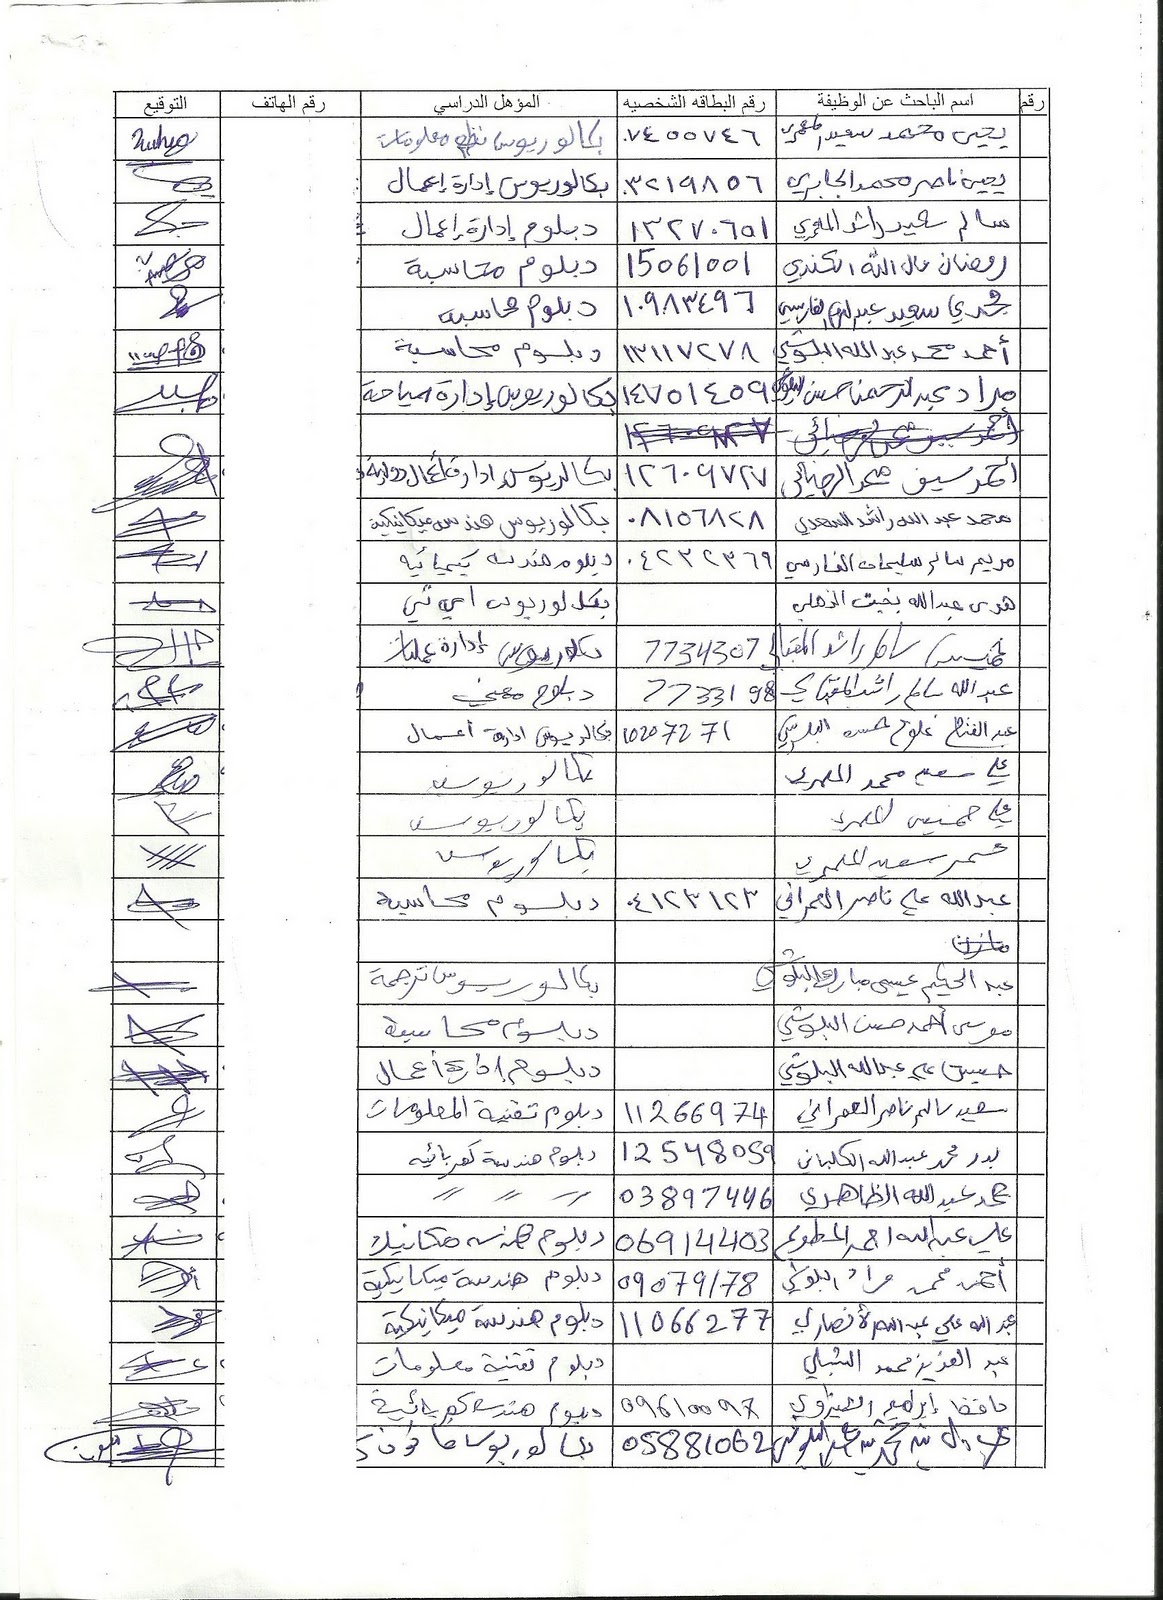 رقم اسم الباحث عن الوظيفة رقم البطاقه الشخصيه المؤهل الدراسي رقم الهاتف التوقيع
يحيى محمد سعيد المعمري ٠٧٤٥٥٧٤٦ بكالوريوس نظم معلومات
يحيى ناصر محمد الجابري ٠٣٢١٩٨٥٦ بكالوريوس إدارة إعمال
سالم سعيد راشد المعمري ١٣٢٧٠٦٥١ دبلوم إدارة إعمال
رمضان مال الله الكندي 15061001 دبلوم محاسبة
سعيد ١٠٩٨٣٤٩٦ دبلوم محاسبه
أحمد محمد عبدالله البلوشي ١٣١١٧٢٧٨ دبلوم محاسبة
مراد عبدالرحمن حسن البلوشي ١٤٧٥١٤٥٩ بكالوريوس إدارة سياحة
أحمد سيف محمد ١٢٦٠٩٧٢٧ بكالريوس ادارة أعمال دولية
محمد عبدالله راشد السعدي ٠٨١٥٦٨٢٨ بكالوريوس هندسه ميكانيكية
مريم سالم سليمان الفارسي ٠٤٢٣٢٣٦٩ دبلوم هندسه كيميائيه
هدى عبدالله بخيت الذهلي بكالوريوس اي تي
خميس سالم راشد المقبالي 7734307 بكالوريوس إدارة عمليات
عبدالله سالم راشد المقبالي 7733198 دبلوم مهني
عبدالفتاح غلوم حسن البلوشي 10207271 بكالريوس ادارة أعمال
علي سعيد محمد المعمري بكالوريوس
علي خميس المعمري بكالوريوس
عمر سعيد المعمري بكالوريوس
عبدالله علي ناصر العمراني ٠٤١٢٣١٢٣ دبلوم محاسبة
مازن
عبد الحكيم عيسى مبارك البلوشي بكالوريوس ترجمة
موسى أحمد حسن البلوشي دبلوم محاسبة
حسين علي عبدالله البلوشي دبلوم إدارة أعمال
سعيد سالم ناصر العمراني 11266974 دبلوم تقنية المعلومات
بدر محمد عبدالله الكلباني 12548059 دبلوم هندسة كهربائيه
محمد عبدالله الظاهري 03897446 〃 〃 〃
علي عبدالله احمد المطوع 06914403 دبلوم هندسه ميكانيك
أحمد محمد مراد البلوشي 09079178 دبلوم هندسة ميكانيكية
عبدالله علي عبدالله الأنصاري 11066277 دبلوم هندسة ميكانيكية
عبد العزيز محمد الشبلي دبلوم تقنية معلومات
حافظ إبراهيم 09610097 دبلوم هندسة كهربائية
05881062 بكالوريوس